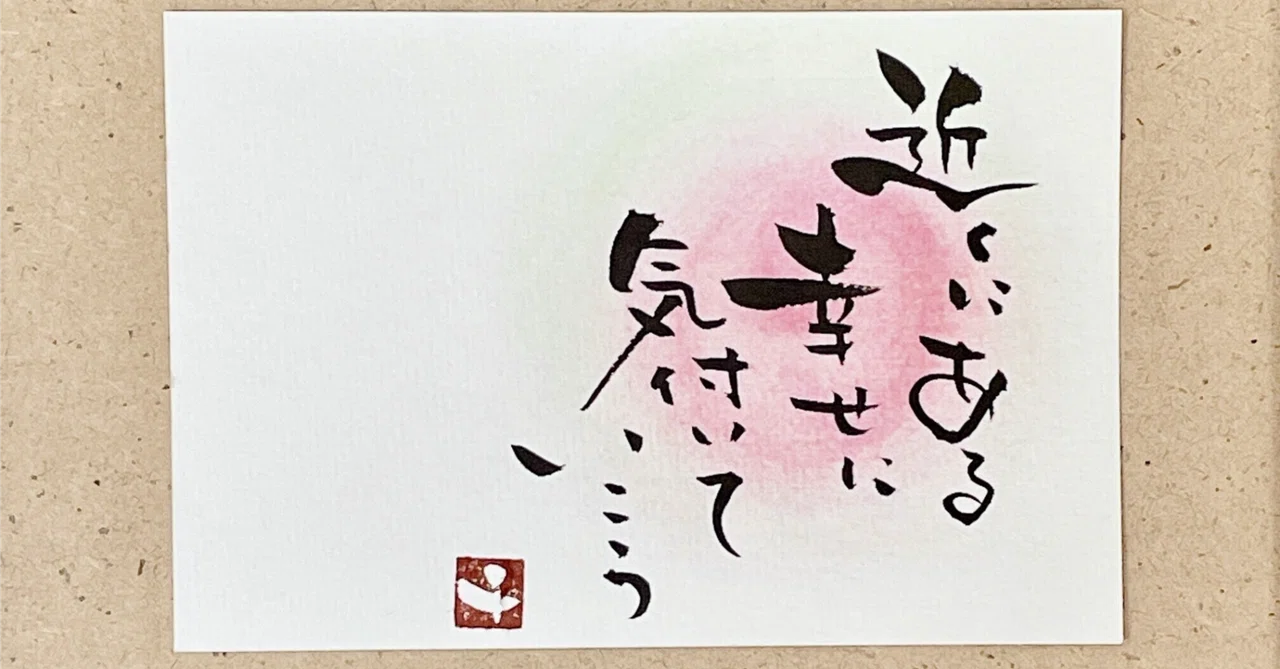 近くにある
幸せに
気付いて
いこう